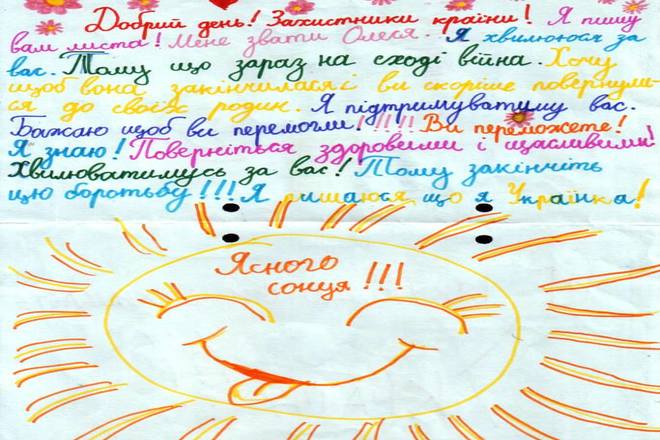 Добрий день! Захистники країни! Я пишу
вам листа! Мене звати Олеся. Я хвилююся за
вас. Тому що зараз на сході війна. Хочу
щоб вона закінчилася і ви скоріше повернули-
ся до своїх родин. Я підтримуватиму вас.
Бажаю щоб ви перемогли!!!!! Ви переможете!
Я знаю! Поверніться здоровими і щасливими!
Хвилюватимусь за вас! Тому закінчіть
цю боротьбу!!! Я пишаюся що я Українка!
Ясного
сонця!!!